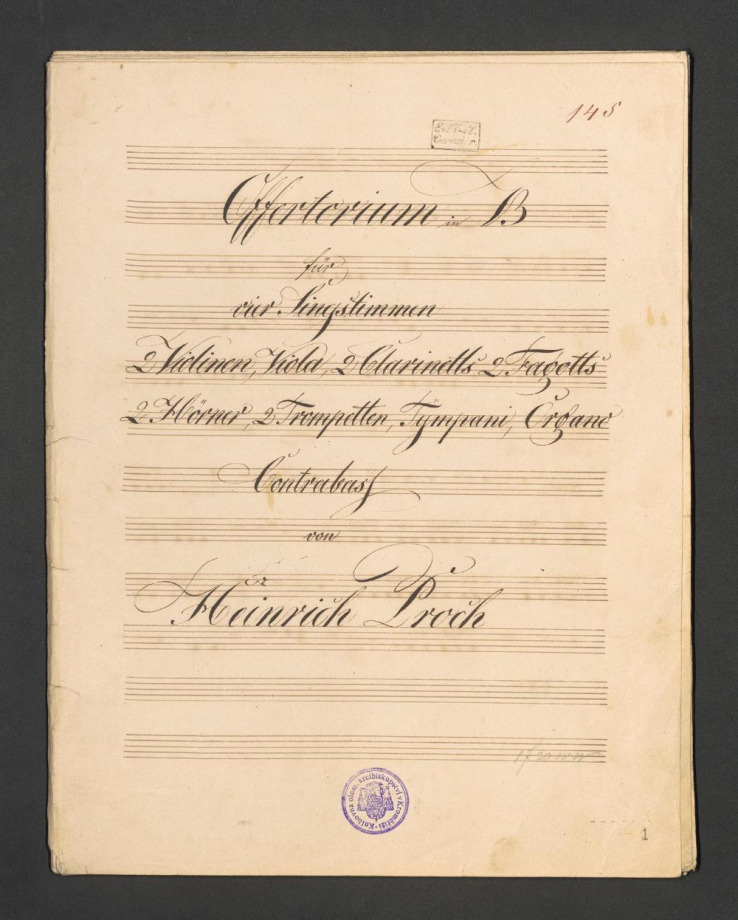 145
Offertorium in B
für
vier Singstimmen
2 Violinen, Viola, 2 Clarinetts 2 Fagotts
2 Hörner, 2 Trompetten, Tÿmpani, Organo
Contrabass
von
Heinrich Proch
Knihovna olom. arcibiskupství v Kroměříži
1